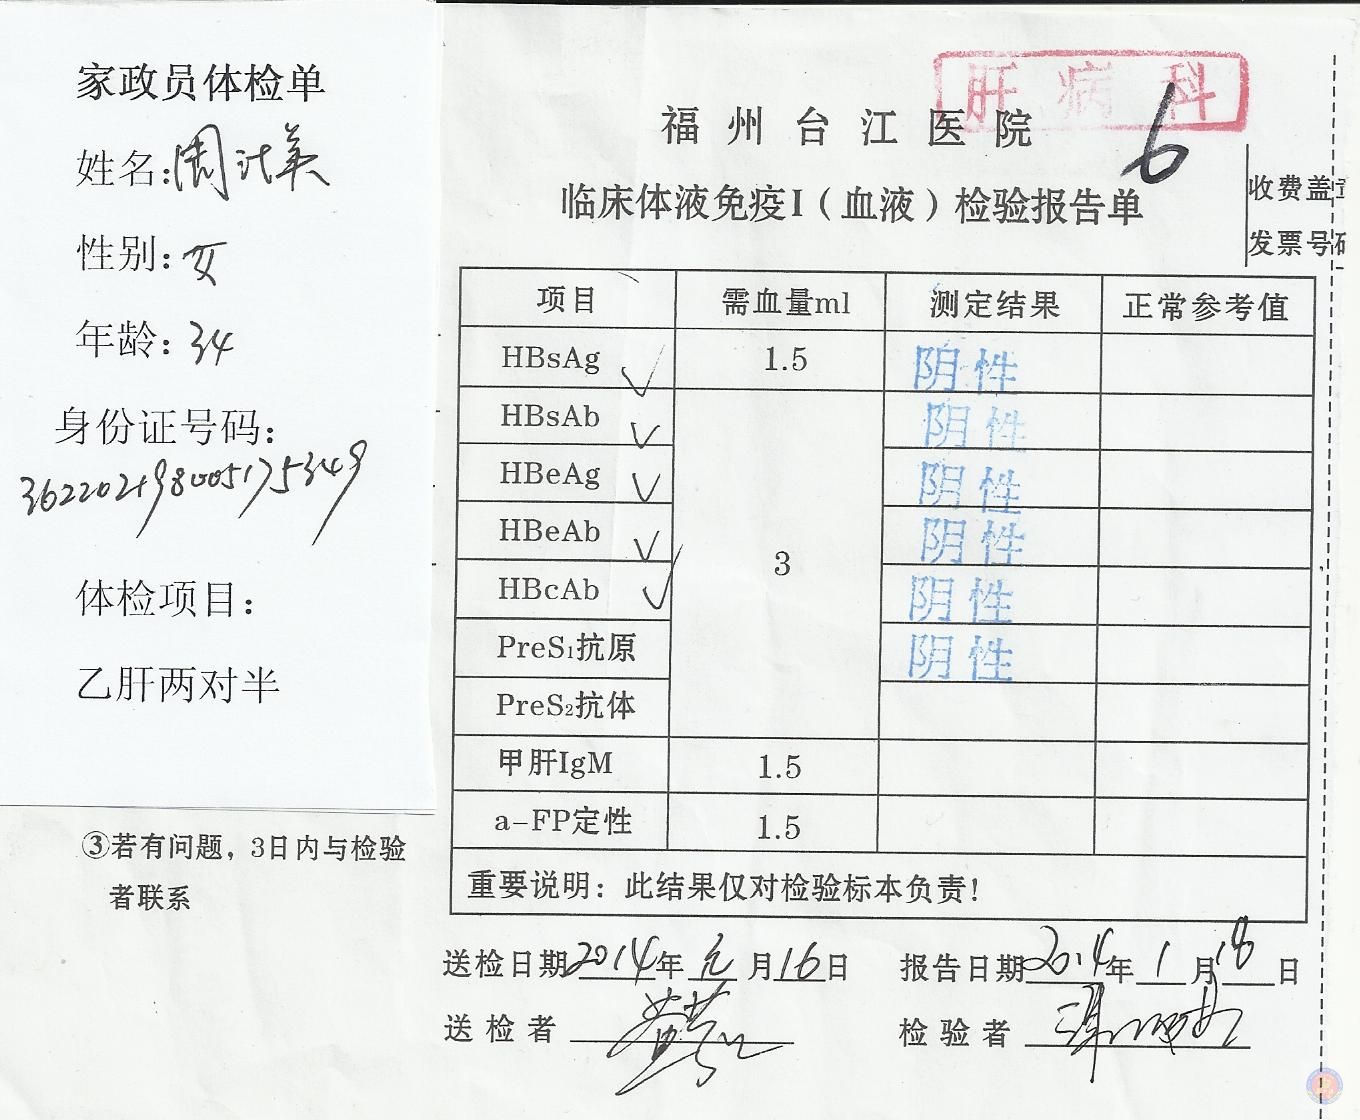 家政员体检单
姓名:周
性别:女
年龄:34
身份证号码:
362202198005175349
体检项目:
乙肝两对半
③若有问题，3日内与检验
者联系
肝病科
福州台江医院
6
临床体液免疫I（血液）检验报告单
收费盖章
发票号码
项目 需血量ml 测定结果 正常参考值
HBsAg 1.5 阴性
HBsAb 阴性
HBeAg 阴性
HBeAb 3 阴性
HBcAb 阴性
PreS₁抗原 阴性
PreS₂抗体
甲肝IgM 1.5
a-FP定性 1.5
重要说明：此结果仅对检验标本负责！
送检日期2014年元月16日 报告日期2014年1月18日
送检者 检验者